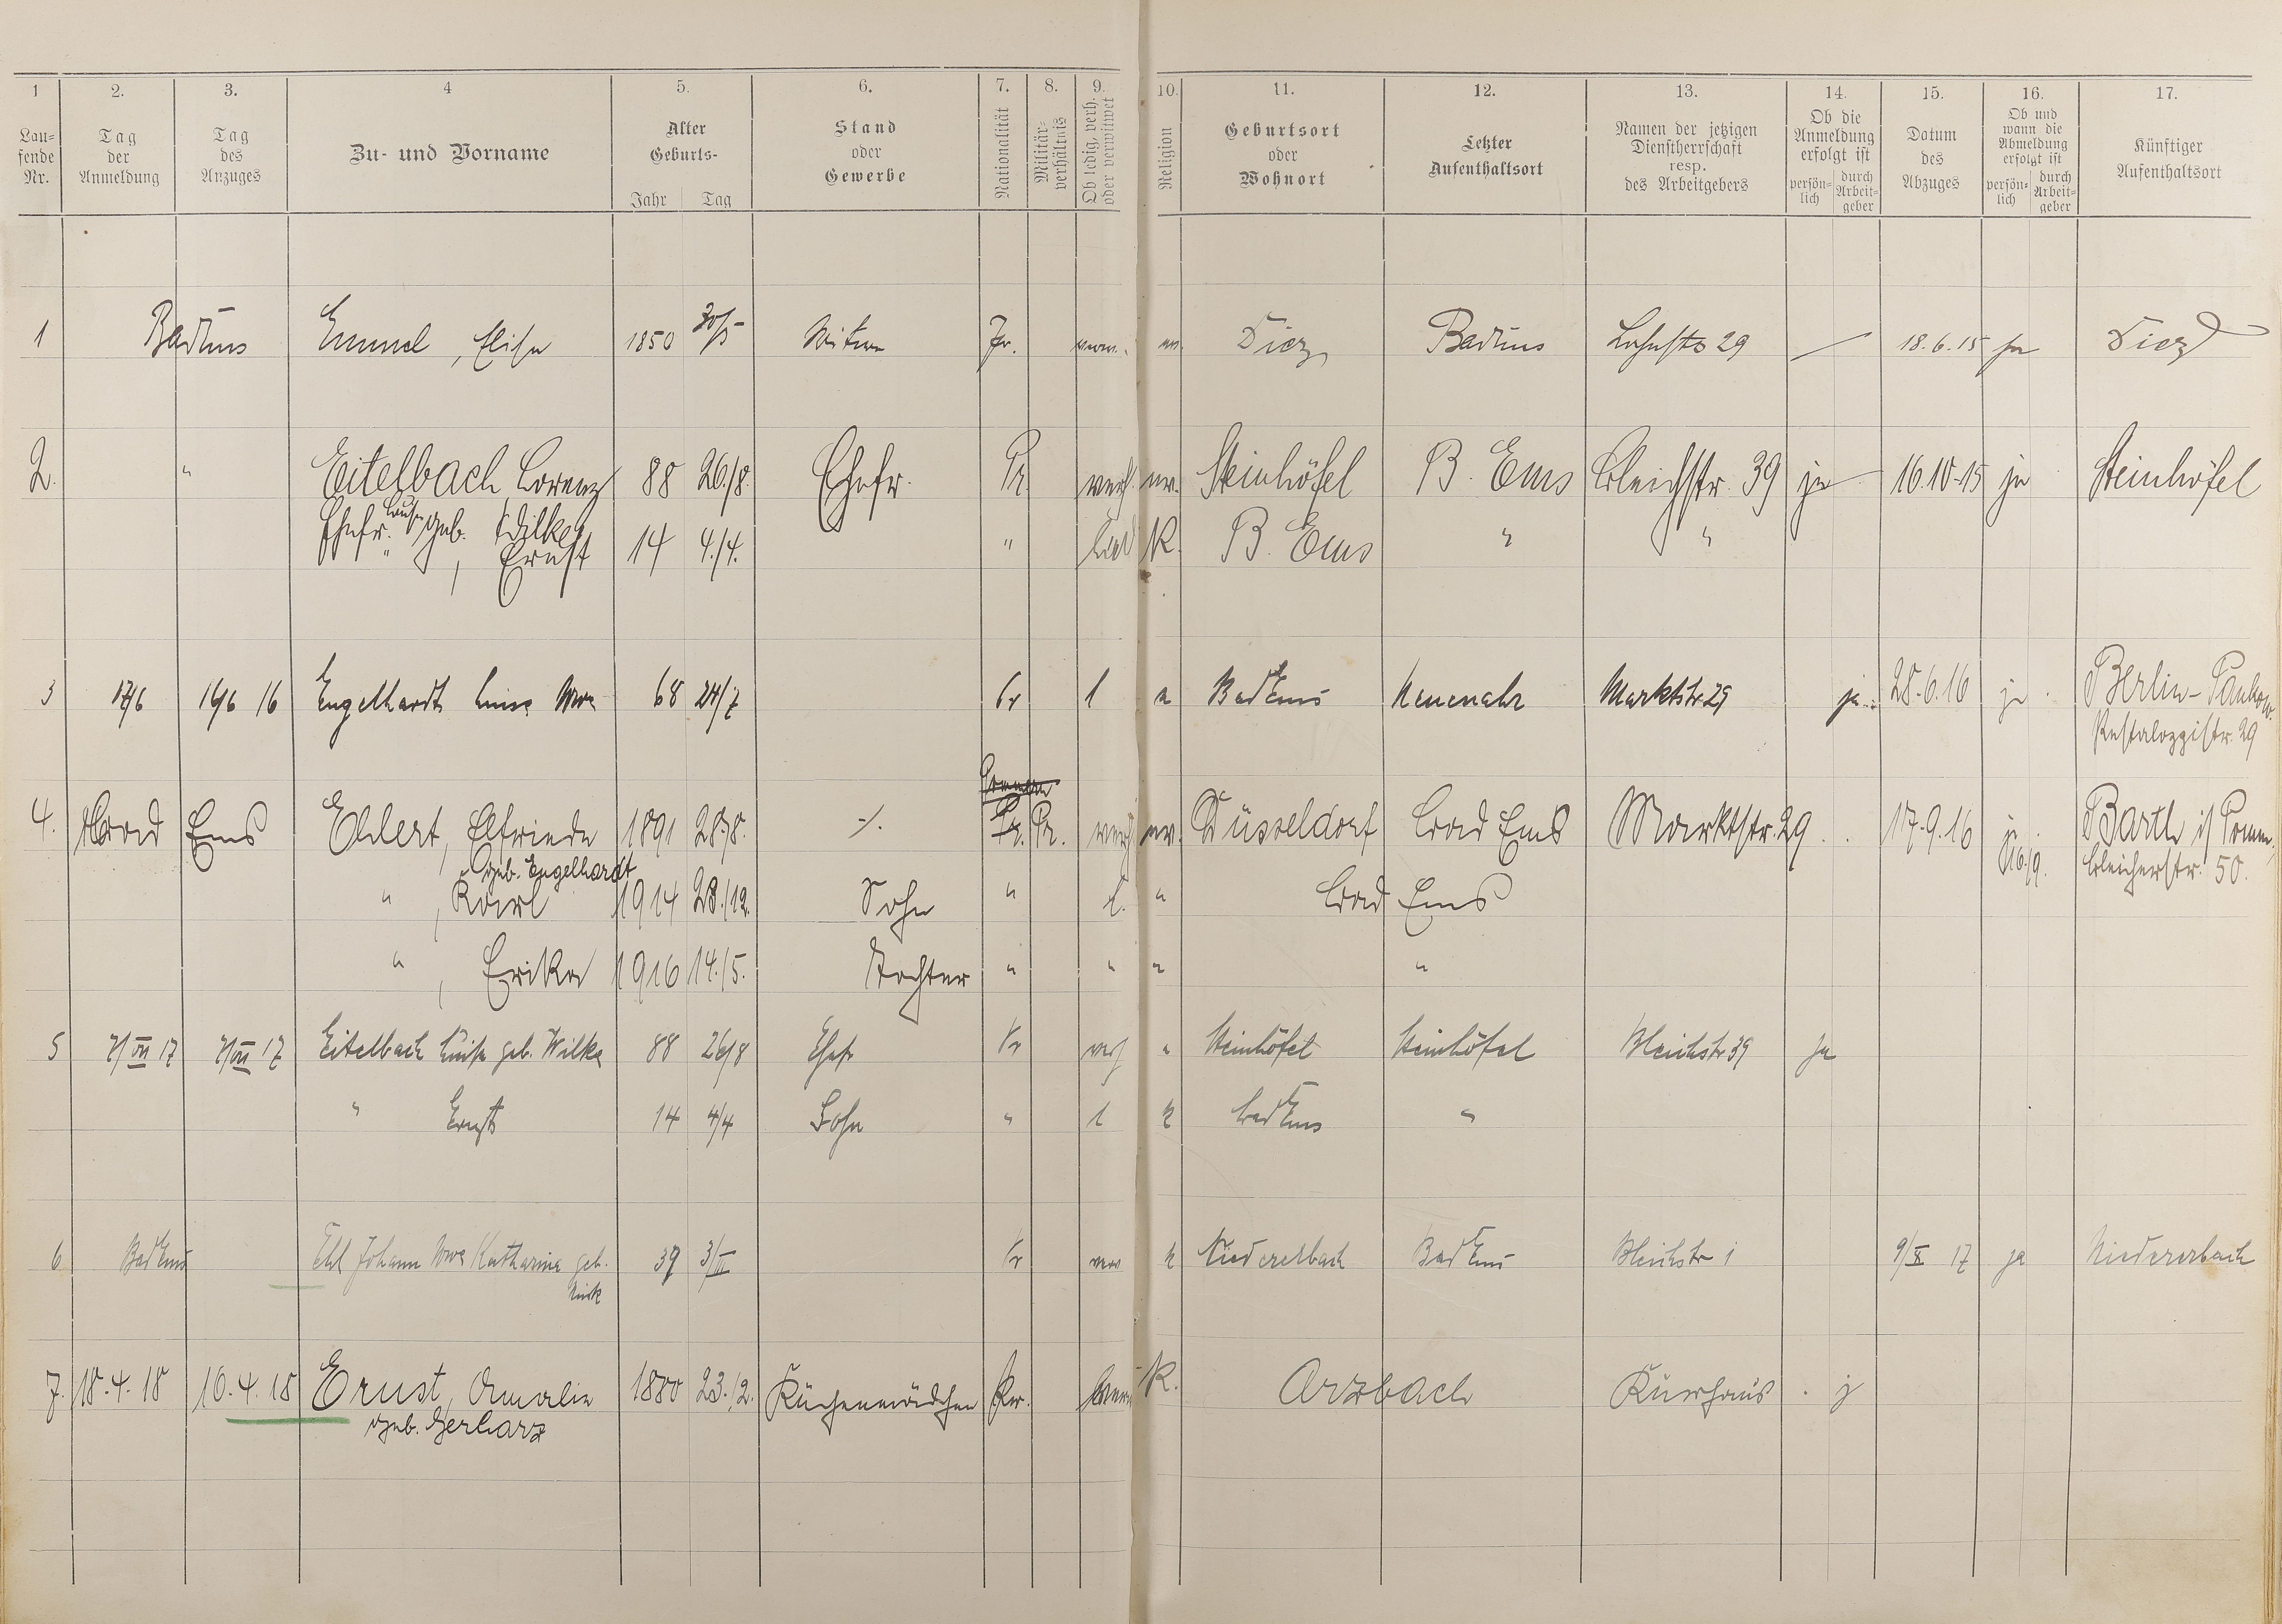 1 2. 3. 4 5. 6. 7. 8. 9. 10. 11. 12. 13. 14. 15. 16. 17.
Lau-
fende
Nr.
Tag
der
Anmeldung
Tag
des
Anzuges
Zu- und Vorname
Alter
Geburts-
Jahr Tag
Stand
oder
Gewerbe
Nationalität
Militär-
verhältnis
Ob ledig, verh.
oder verwitwet
Religion
Geburtsort
oder
Wohnort
Letzter
Aufenthaltsort
Namen der jetzigen
Dienstherrschaft
resp.
des Arbeitgebers
Ob die
Anmeldung
erfolgt ist
persön-
lich
durch
Arbeit-
geber
Datum
des
Abzuges
Ob und
wann die
Abmeldung
erfolgt ist
persön-
lich
durch
Arbeit-
geber
Künftiger
Aufenthaltsort
1 Bad Ems Emmel, Elise 1850 30/5 Witwe Pr. verw. ev. Diez Bad Ems 29 18.6.15 ja Diez
2. " Eitelbach Lorenz 88 26./8. Ehefr. Pr. verh. ev. Steinhöfel B. Ems Bleichstr. 39 ja 16.10.15 ja Steinhöfel
Ehefr. Luise geb. Wilke
" , Ernst 14 4./4. " led K. B. Ems " "
3 17/6 16/6 16 Engelhardt Luise Wwe 68 24/7 Pr l e Bad Ems Neuenahr Marktstr 29 ja 28.6.16 ja Berlin-Pankow
Pestalozzistr. 29
Pommern
4. Bad Ems Ehlert, Elfriede 1891 28./8. -/. Pr. Pr. verh. ev. Düsseldorf Bad Ems Marktstr. 29 17.9.16 ja Barth i/ Pomm,
geb. Engelhardt 16/9. Bleicherstr. 50.
" , Karl 1914 28./12. Sohn " l. " Bad Ems
" , Erika 1916 14./5. Tochter " " " "
5 7/VII 17 7/VII 17 Eitelbach Luise geb. Wilke 88 26/8 Ehefr Pr verh " Steinhöfel Steinhöfel Bleichstr 39 ja
" Ernst 14 4/4 Sohn " l k Bad Ems "
6 Bad Ems Ehl Johann Wwe Katharina geb. 39 Pr verw k Niedererbach Bad Ems Bleichstr 1 9/X 17 ja Niedererbach
7. 18.4.18 16.4.18 Ernst, Amalie 1880 23./2. Küchenmädchen Pr. K. Arzbach Kurhaus . j
geb. Gerharz